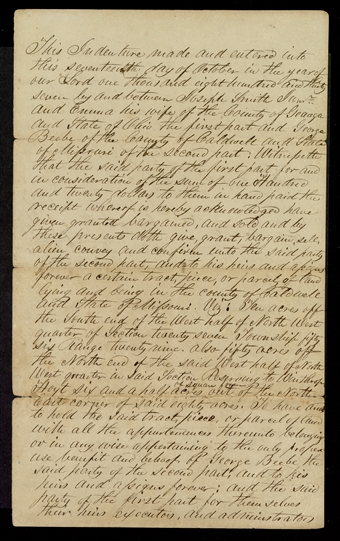 This Indenture made and entered into
this seventeenth day of October in the year of
our Lord one thousand eight hundred and thirty
seven by and between Joseph Smith Jun.r
and Emma his wife of the County of Geauga
and State of Ohio the first part and George
Beebe of the County of Caldwell and State
of Missouri of the second part. Witnesseth
that the said party of the first part for and
in consideration of the sum of one Hundred
and twenty dollars to them in hand paid the
receipt whereof is hereby acknowledged have
given granted bargained, and sold and by
these presents doth give, grant, bargain, sell,
alien convey and confirm unto the said party
of the second party and to his heirs and assigns
forever a certain tract, piece, or parcel of land
lying and being in the County of Caldwell
and State of Missouri. Viz: Ten acres off
the South end of the West half of North West
quarter of Section twenty seven Township fifty
six Range twenty nine. also fifty acres off
the North end of the said West half of North
West quarter in said Section
of square
West six and a half acres out of the North
east corner of said eighty acres. To have and
to hold the said tract, piece, or parcel of land
with all the appurtenances thereunto belonging
or in any wise appertaining to the only proper
use benefit and behoof of George Beebe the
said party of the second part, and to his
heirs and assigns forever; and the said
party of the first part for themselves
their heirs executors, and administrators